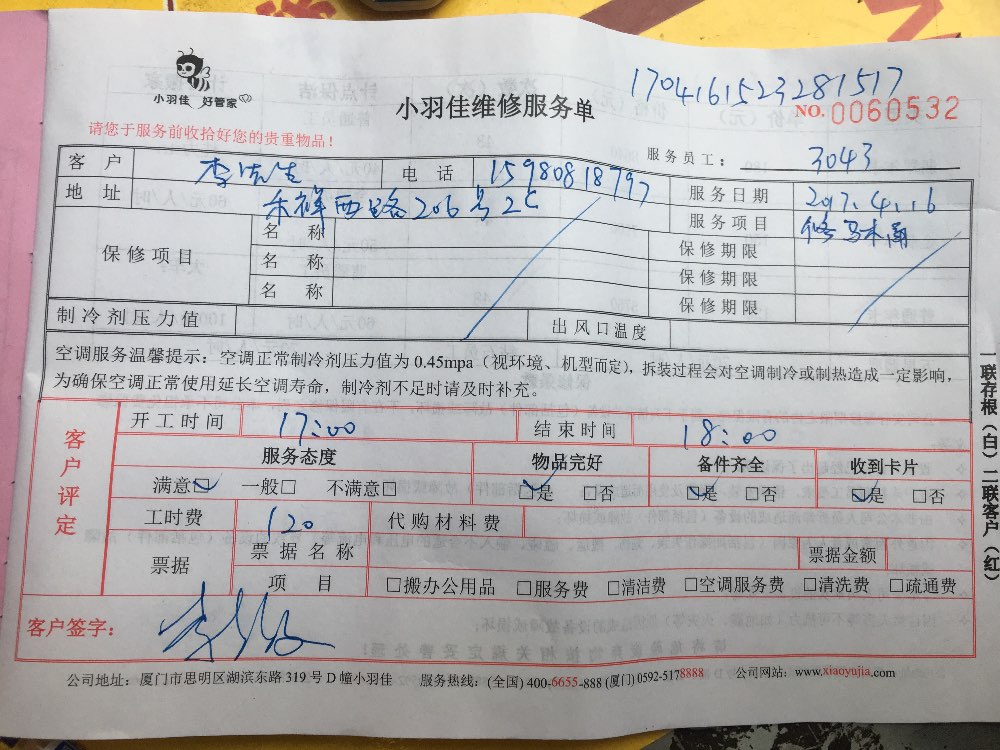 小羽佳 好管家
小羽佳维修服务单
1704161523281517
NO.0060532
请您于服务前收拾好您的贵重物品！
服务员工： 3043
客 户 李先生 电 话 15980818797 服务日期 2017.4.16
地 址 禾祥西路206号2C 服务项目 修马木桶
保修项目 名 称 保修期限
名 称 保修期限
名 称 保修期限
制冷剂压力值 出风口温度
空调服务温馨提示：空调正常制冷剂压力值为 0.45mpa（视环境、机型而定），拆装过程会对空调制冷或制热造成一定影响，
为确保空调正常使用延长空调寿命，制冷剂不足时请及时补充。
客户评定
开工时间 17:00 结束时间 18:00
服务态度 物品完好 备件齐全 收到卡片
满意☑ 一般□ 不满意□ ☑是 □否 ☑是 □否 ☑是 □否
工时费 120 代购材料费
票据 票据名称 票据金额
项 目 □搬办公用品 □服务费 □清洁费 □空调服务费 □清洗费 □疏通费
客户签字：
公司地址：厦门市思明区湖滨东路 319 号 D 幢小羽佳 服务热线：(全国) 400-6655-888 (厦门) 0592-5178888 公司网站：www.xiaoyujia.com
一联存根（白）二联客户（红）